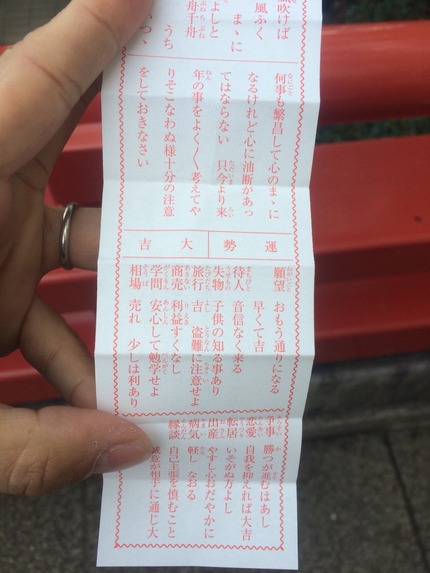 風吹けば
風ふく
まゝに
よしと
舟千舟
うち
つゝ
何事も繁昌して心のまゝに
なるけれど心に油断があっ
てはならない 只今より来
年の事をよく〱考えてや
りそこなわぬ様十分の注意
をしておきなさい
運勢 大吉
願望 おもう通りになる
早くて吉
待人 音信なく来る
失物 子供の知る事あり
旅行 吉 盗難に注意せよ
商売 利益すくなし
学問 安心して勉学せよ
相場 売れ 少しは利あり
争事 勝つが進むはあし
恋愛 自我を抑えれば大吉
転居 いそがぬ方よし
出産 やすし心おだやかに
病気 軽し なおる
縁談 自己主張を慎むこと
が相手に通じ大